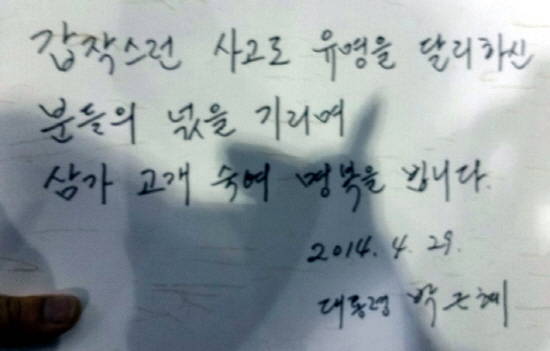 갑작스런 사고로 유명을 달리하신
분들의 넋을 기리며
삼가 고개 숙여 명복을 빕니다.
2014. 4. 29.
대통령 박근혜